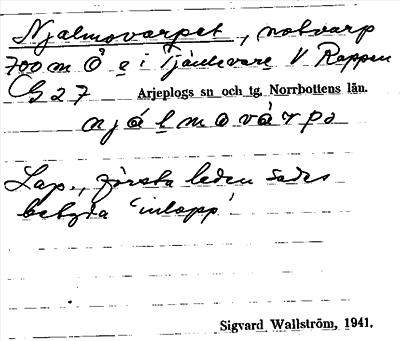 Njalmovarpet, notvarp
700 m Ö e i Tjäulevare V Rappen
G 27 Arjeplogs sn och tg, Norrbottens län.
njálmovárpə
Lap., första leden sades
betyda 'inlopp'
Sigvard Wallström, 1941.